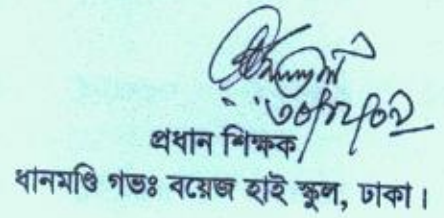 ৩০/১২/০৯
প্রধান শিক্ষক
ধানমণ্ডি গভঃ বয়েজ হাই স্কুল, ঢাকা।